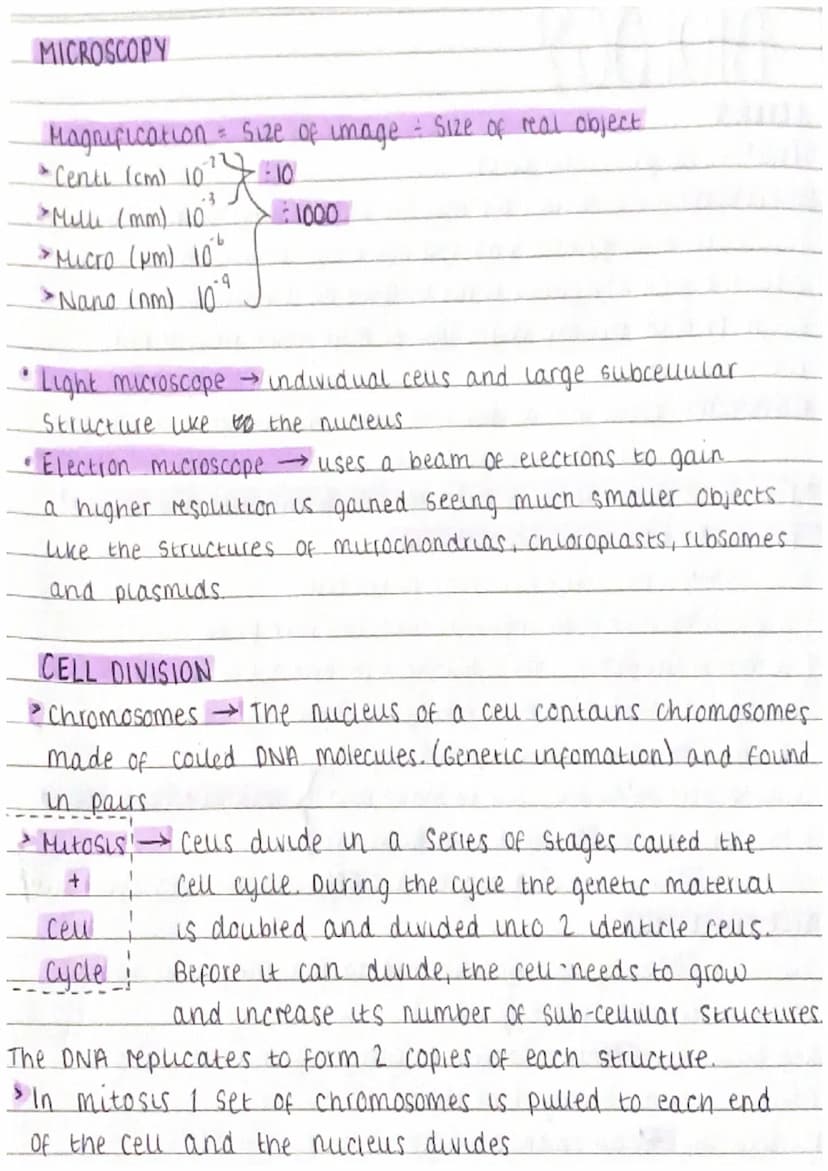 MICROSCOPY
Magnification = Size of image ÷ Size of real object
> Centi (cm) 10⁻² ÷10
> Milli (mm) 10⁻³ ÷1000
> Micro (μm) 10⁻⁶
> Nano (nm) 10⁻⁹
• Light microscope → individual cells and large subcellular
Structure like the nucleus
• Election microscope → uses a beam of electrons to gain
a higher resolution is gained seeing much smaller objects
like the structures of mitrochondrias, chloroplasts, ribsomes
and plasmids.
CELL DIVISION
> Chromosomes → The nucleus of a cell contains chromosomes
made of coiled DNA molecules. (Genetic infomation) and found
in pairs
> Mitosis → Cells divide in a series of stages called the
+ cell cycle. During the cycle the genetic material
cell is doubled and divided into 2 identicle cells.
cycle Before it can divide, the cell needs to grow
and increase its number of sub-cellular structures.
The DNA replicates to form 2 copies of each structure.
> In mitosis 1 set of chromosomes is pulled to each end
of the cell and the nucleus divides